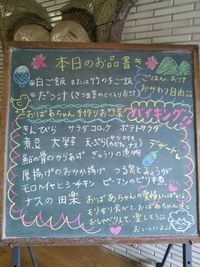 本日のお品書き
①白ご飯 または 竹の子ご飯
ごはん、みそ汁
おかわり自由
②だっ汁 (さつま芋のじくり入り)
おばあちゃん手作りお惣菜バイキング!!
きんぴら サラダコロッケ ポテトサラダ
煮豆 大学芋 天ぷら
デザート
鮎の背のからあげ きゅうりの漬物
厚揚げのおかか揚げ つる菜とみょうが
モロヘイヤとシーチキン ピーマンのピリ辛煮
ナスの田楽
おばあちゃんの愛情いっぱい
モリモリ食べて、おばあちゃん達と
おしゃべりして、楽しもう
おいしいよ